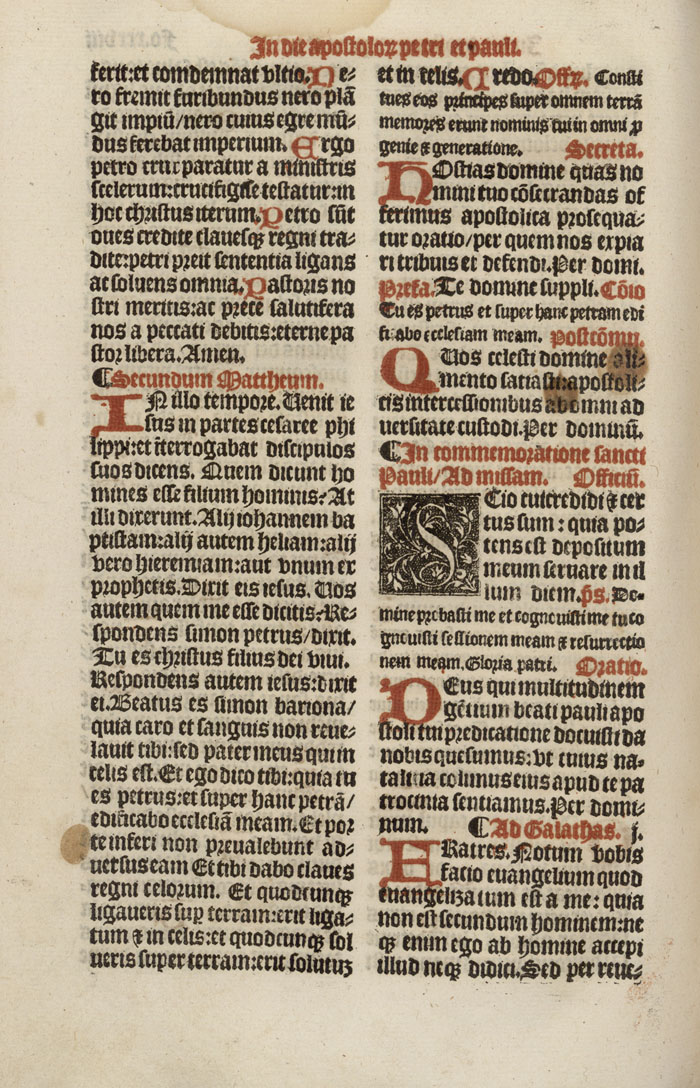 In die apostoloꝝ petri et pauli.
ferit:et comdemnat vltio. Ne⸗
ro fremit furibundus nero plā
git impiū/nero cuius egre mū⸗
dus ferebat imperium. Ergo
petro crux paratur a ministris
scelerum:crucifigisse testatur:in
hoc christus iterum. Petro sūt
oues credite clauesqȝ regni tra⸗
dite:petri preit sententia ligans
ac soluens omnia. Pastoris no
stri meritis:ac prece salutifera
nos a peccati debitis:eterne pa
stor libera. Amen.
¶ Secundum Mattheum.
IN illo tempore. Uenit ie
sus in partes cesaree phi
lippi:et īterrogabat discipulos
suos dicens. Quem dicunt ho
mines esse filium hominis? At
illi dixerunt. Alij iohannem ba
ptistam:alij autem heliam:alij
vero hieremiam:aut vnum ex
prophetis. Dixit eis iesus. Uos
autem quem me esse dicitis? Re⸗
spondens simon petrus/dixit.
Tu es christus filius dei viui.
Respondens autem iesus:dixit
ei. Beatus es simon bariona/
quia caro et sanguis non reue⸗
lauit tibi:sed pater meus qui in
celis est. Et ego dico tibi:quia tu
es petrus:et super hanc petrā/
edificabo ecclesiā meam. Et por
te inferi non preualebunt ad⸗
uersus eam Et tibi dabo claues
regni celorum. Et quodcunqȝ
ligaueris suꝑ terram:erit liga⸗
tum ⁊ in celis:et quodcunqȝ sol
ueris super terram:erit solutuȝ
et in celis. Credo. Offꝝ. Consti
tues eos principes super omnem terrā
memores erunt nominis tui in omni ꝓ
genie ⁊ generatione. Secreta.
HOstias domine quas no
mini tuo cōsecrandas of
ferimus apostolica prosequa⸗
tur oratio/per quem nos expia
ri tribuis et defendi. Per domi.
Prefa. Te domine suppli. Cōio
Tu es petrus et super hanc petram edi
ficabo ecclesiam meam. Postcōmu.
QUos celesti domine ali⸗
mento satiasti:apostoli⸗
cis intercessionibus ab omni ad
uersitate custodi. Per dominū.
¶ In commemoratione sancti
Pauli/Ad missam. Officiū.
SCio cui credidi ⁊ cer
tus sum: quia po⸗
tens est depositum
meum seruare in il
lum diem. p̄s. Do⸗
mine probasti me et cognouisti me tu co
gnouisti sessionem meam ⁊ resurrectio
nem meam. Gloria patri. Oratio.
DEus qui multitudinem
gētium beati pauli apo
stoli tui predicatione docuisti da
nobis quesumus:vt cuius na⸗
talitia colimus eius apud te pa
trocinia sentiamus. Per domi⸗
num. ¶ Ad Galathas. j.
FRatres. Notum vobis
facio euangelium quod
euangelizatum est a me: quia
non est secundum hominem:ne
qȝ enim ego ab homine accepi
illud neqȝ didici. Sed per reue⸗